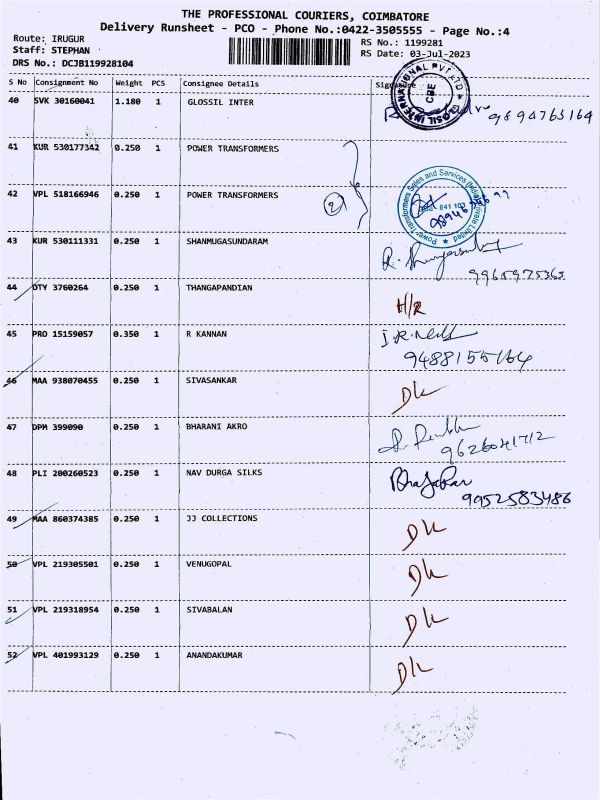 THE PROFESSIONAL COURIERS, COIMBATORE
Delivery Runsheet - PCO - Phone No.:0422-3505555 - Page No.:4
Route: IRUGUR
RS No.: 1199281
Staff: STEPHAN
RS Date: 03-Jul-2023
DRS No.: DCJB119928104
S No Consignment No Weight PCS Consignee Details
40 SVK 30160041 1.180 1 GLOSSIL INTER
41 KUR 530177342 0.250 1 POWER TRANSFORMERS
42 VPL 518166946 0.250 1 POWER TRANSFORMERS 2
Power Transformers Sales and Services (India) Private Limited
43 KUR 530111331 0.250 1 SHANMUGASUNDARAM
44 DTY 3760264 0.250 1 THANGAPANDIAN H/R
45 PRO 15159057 0.350 1 R KANNAN
9488155164
46 MAA 938070455 0.250 1 SIVASANKAR DL
47 DPM 399090 0.250 1 BHARANI AKRO
9626041712
48 PLI 200260523 0.250 1 NAV DURGA SILKS
9952583486
49 MAA 860374385 0.250 1 JJ COLLECTIONS DL
50 VPL 219305501 0.250 1 VENUGOPAL DL
51 VPL 219318954 0.250 1 SIVABALAN DL
52 VPL 401993129 0.250 1 ANANDAKUMAR DL